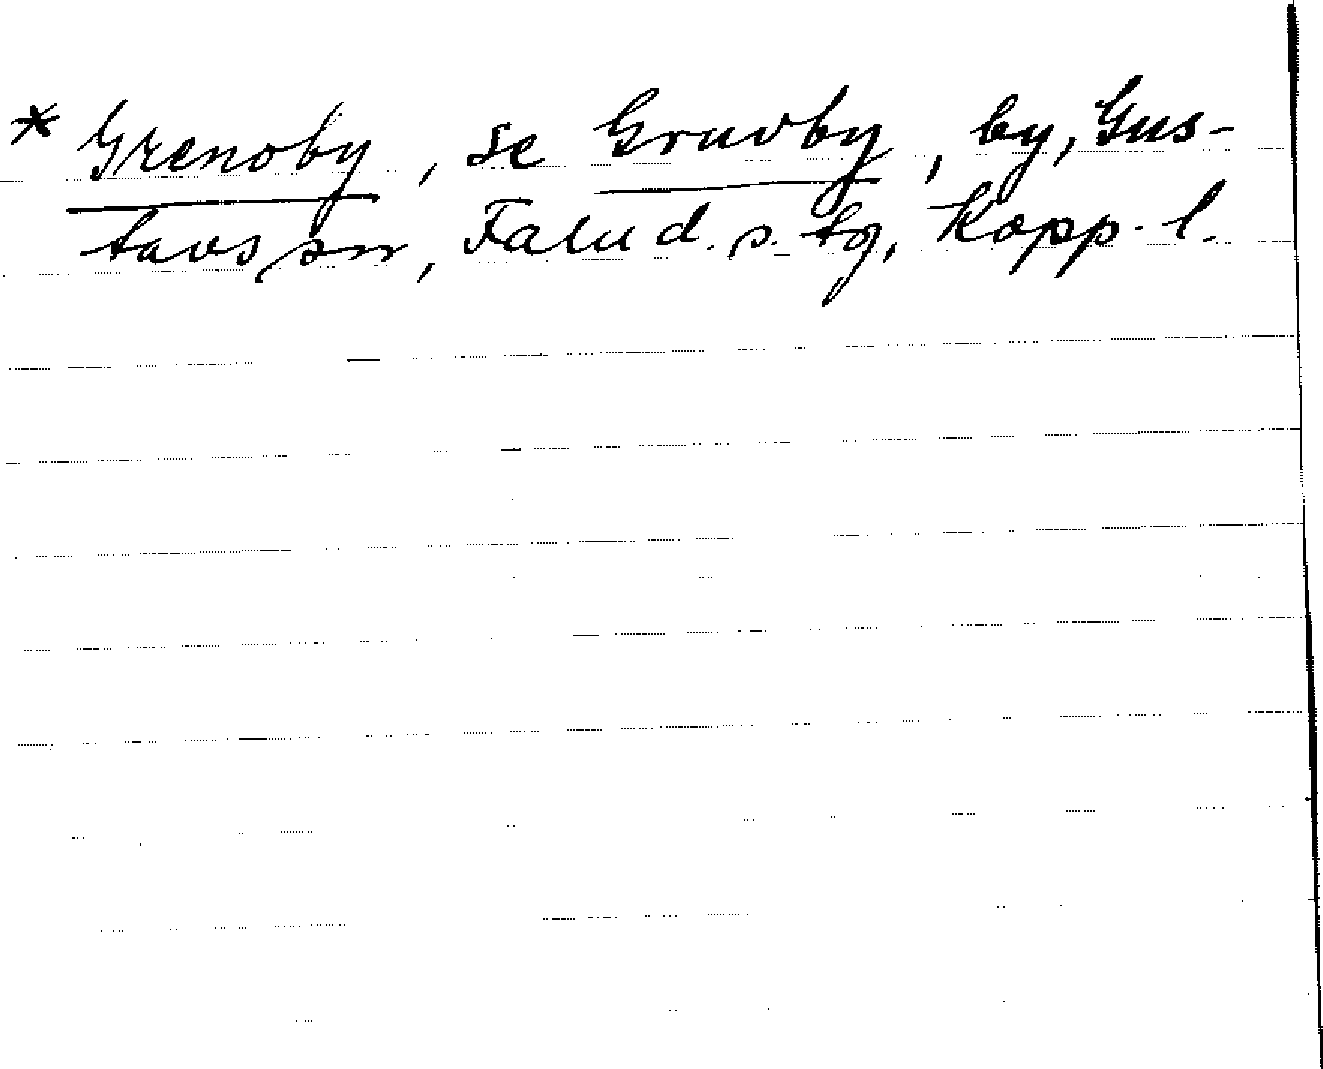 * Grenoby, se Gruvby, by, Gus-
tavs sn, Falu d. s. tg, Kopp. l.